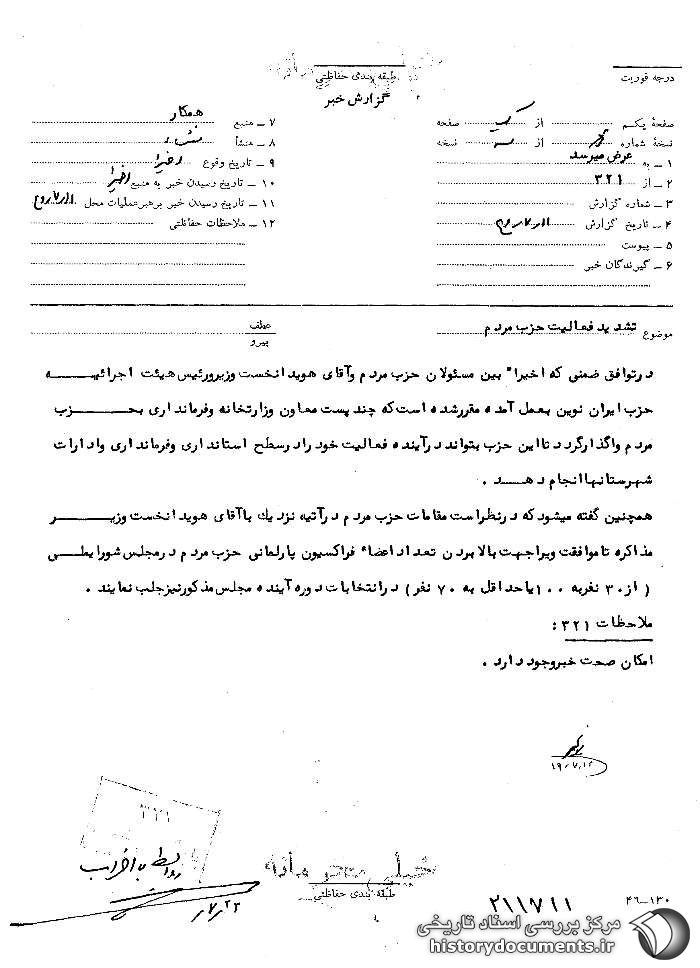 طبقه بندی حفاظتی
گزارش خبر
درجه فوریت
صفحهٔ یکم از یک صفحه
نسخهٔ شماره از سه نسخه
۱ ـ به عرض میرسد
۲ ـ از ۳۲۱
۳ ـ شماره گزارش
۴ ـ تاریخ گزارش
۵ ـ پیوست
۶ ـ گیرندگان خبر
۷ ـ منبع همکار
۸ ـ منشأ
۹ ـ تاریخ وقوع اخیرا
۱۰ ـ تاریخ رسیدن خبر به منبع اخیرا
۱۱ ـ تاریخ رسیدن خبر برهبر عملیات محل
۱۲ ـ ملاحظات حفاظتی
موضوع تشدید فعالیت حزب مردم
عطف
پیرو
درتوافق ضمنی که اخیرا" بین مسئولان حزب مردم وآقای هویدا نخست وزیرورئیس هیئت اجرائیه
حزب ایران نوین بعمل آمده مقررشده است که چند پست معاون وزارتخانه وفرمانداری بحزب
مردم واگذارگردد تا این حزب بتواند درآینده فعالیت خود رادرسطح استانداری وفرمانداری وادارات
شهرستانها انجام دهد .
همچنین گفته میشود که درنظراست مقامات حزب مردم درآتیه نزدیك با آقای هویدا نخست وزیر
مذاکره تا موافقت ویراجهت بالا بردن تعداد اعضاء فراکسیون پارلمانی حزب مردم درمجلس شورایملی
( از ۳۰ نفربه ۱۰۰ یا حداقل به ۷۰ نفر) درانتخابات دوره آینده مجلس مذکورنیزجلب نمایند .
ملاحظات ۳۲۱ :
امکان صحت خبروجود دارد .
۳۲۱
روابط با احزاب
خیلی محرمانه
طبقه بندی حفاظتی
۲۱۱۷۱۱
۴۶-۱۳۰
مرکز بررسی اسناد تاریخی
historydocuments.ir